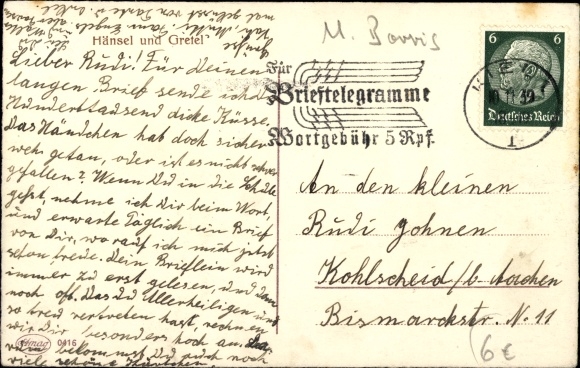 mal gegrüsst von Tante u. Onkel
Hänsel und Gretel
Lieber Rudi! Für Deinen
langen Brief sende ich Dir
Hunderttausend dicke Küsse.
Das Händchen hat doch sicher
weh getan, oder ist es nicht schwer
gefallen? Wenn Du in die Schule
gehst, nehme ich Dir beim Wort,
und erwarte Täglich ein Brief
von Dir, worauf ich mich jetzt
schon freue. Dein Brieflein wird
immer zu erst gelesen, und dann
noch oft. Das Du Allerheiligen uns
so treu vertreten hast, rechnen
wir Dir besonders hoch an.
bekommst Du auch noch
viele schöne
Amag 0416
M. Borris
Für
Brieftelegramme
Wortgebühr 5 Rpf.
6 6
10.11.39
Deutsches Reich
1
An den kleinen
Rudi Johnen
Kohlscheid/b. Aachen
Bismarckstr. N. 11
6€